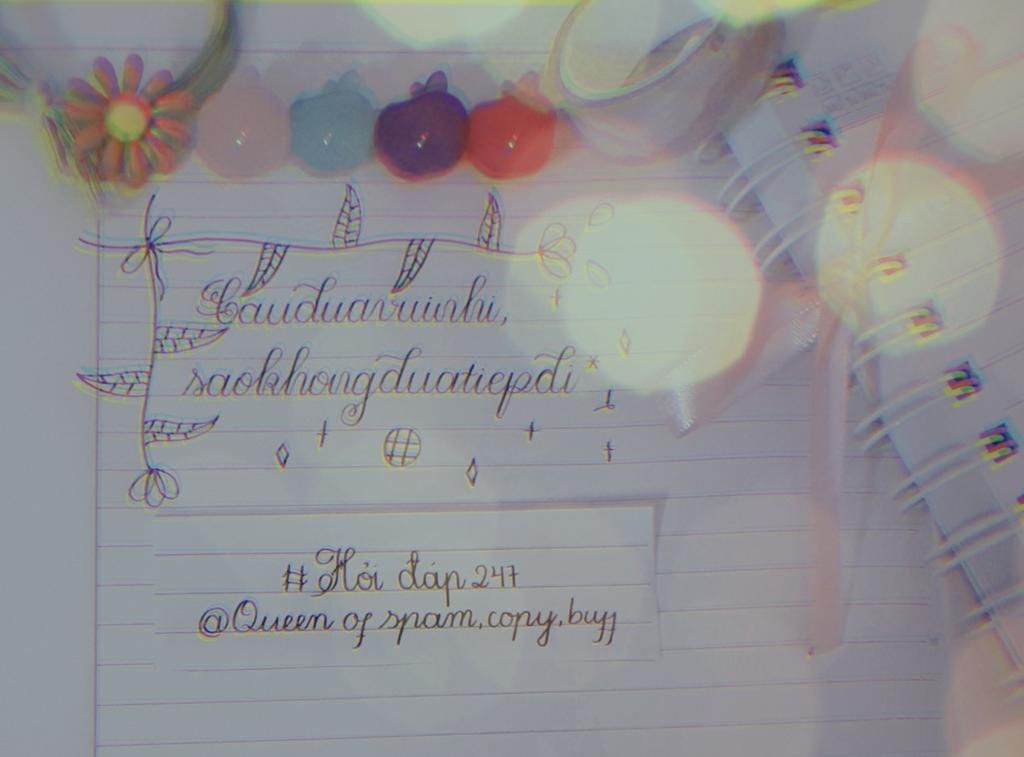 Cauđuavuinhi,
saokhongđuatiepđi
#Hỏi đáp 247
@Queen of spam,copy,buff